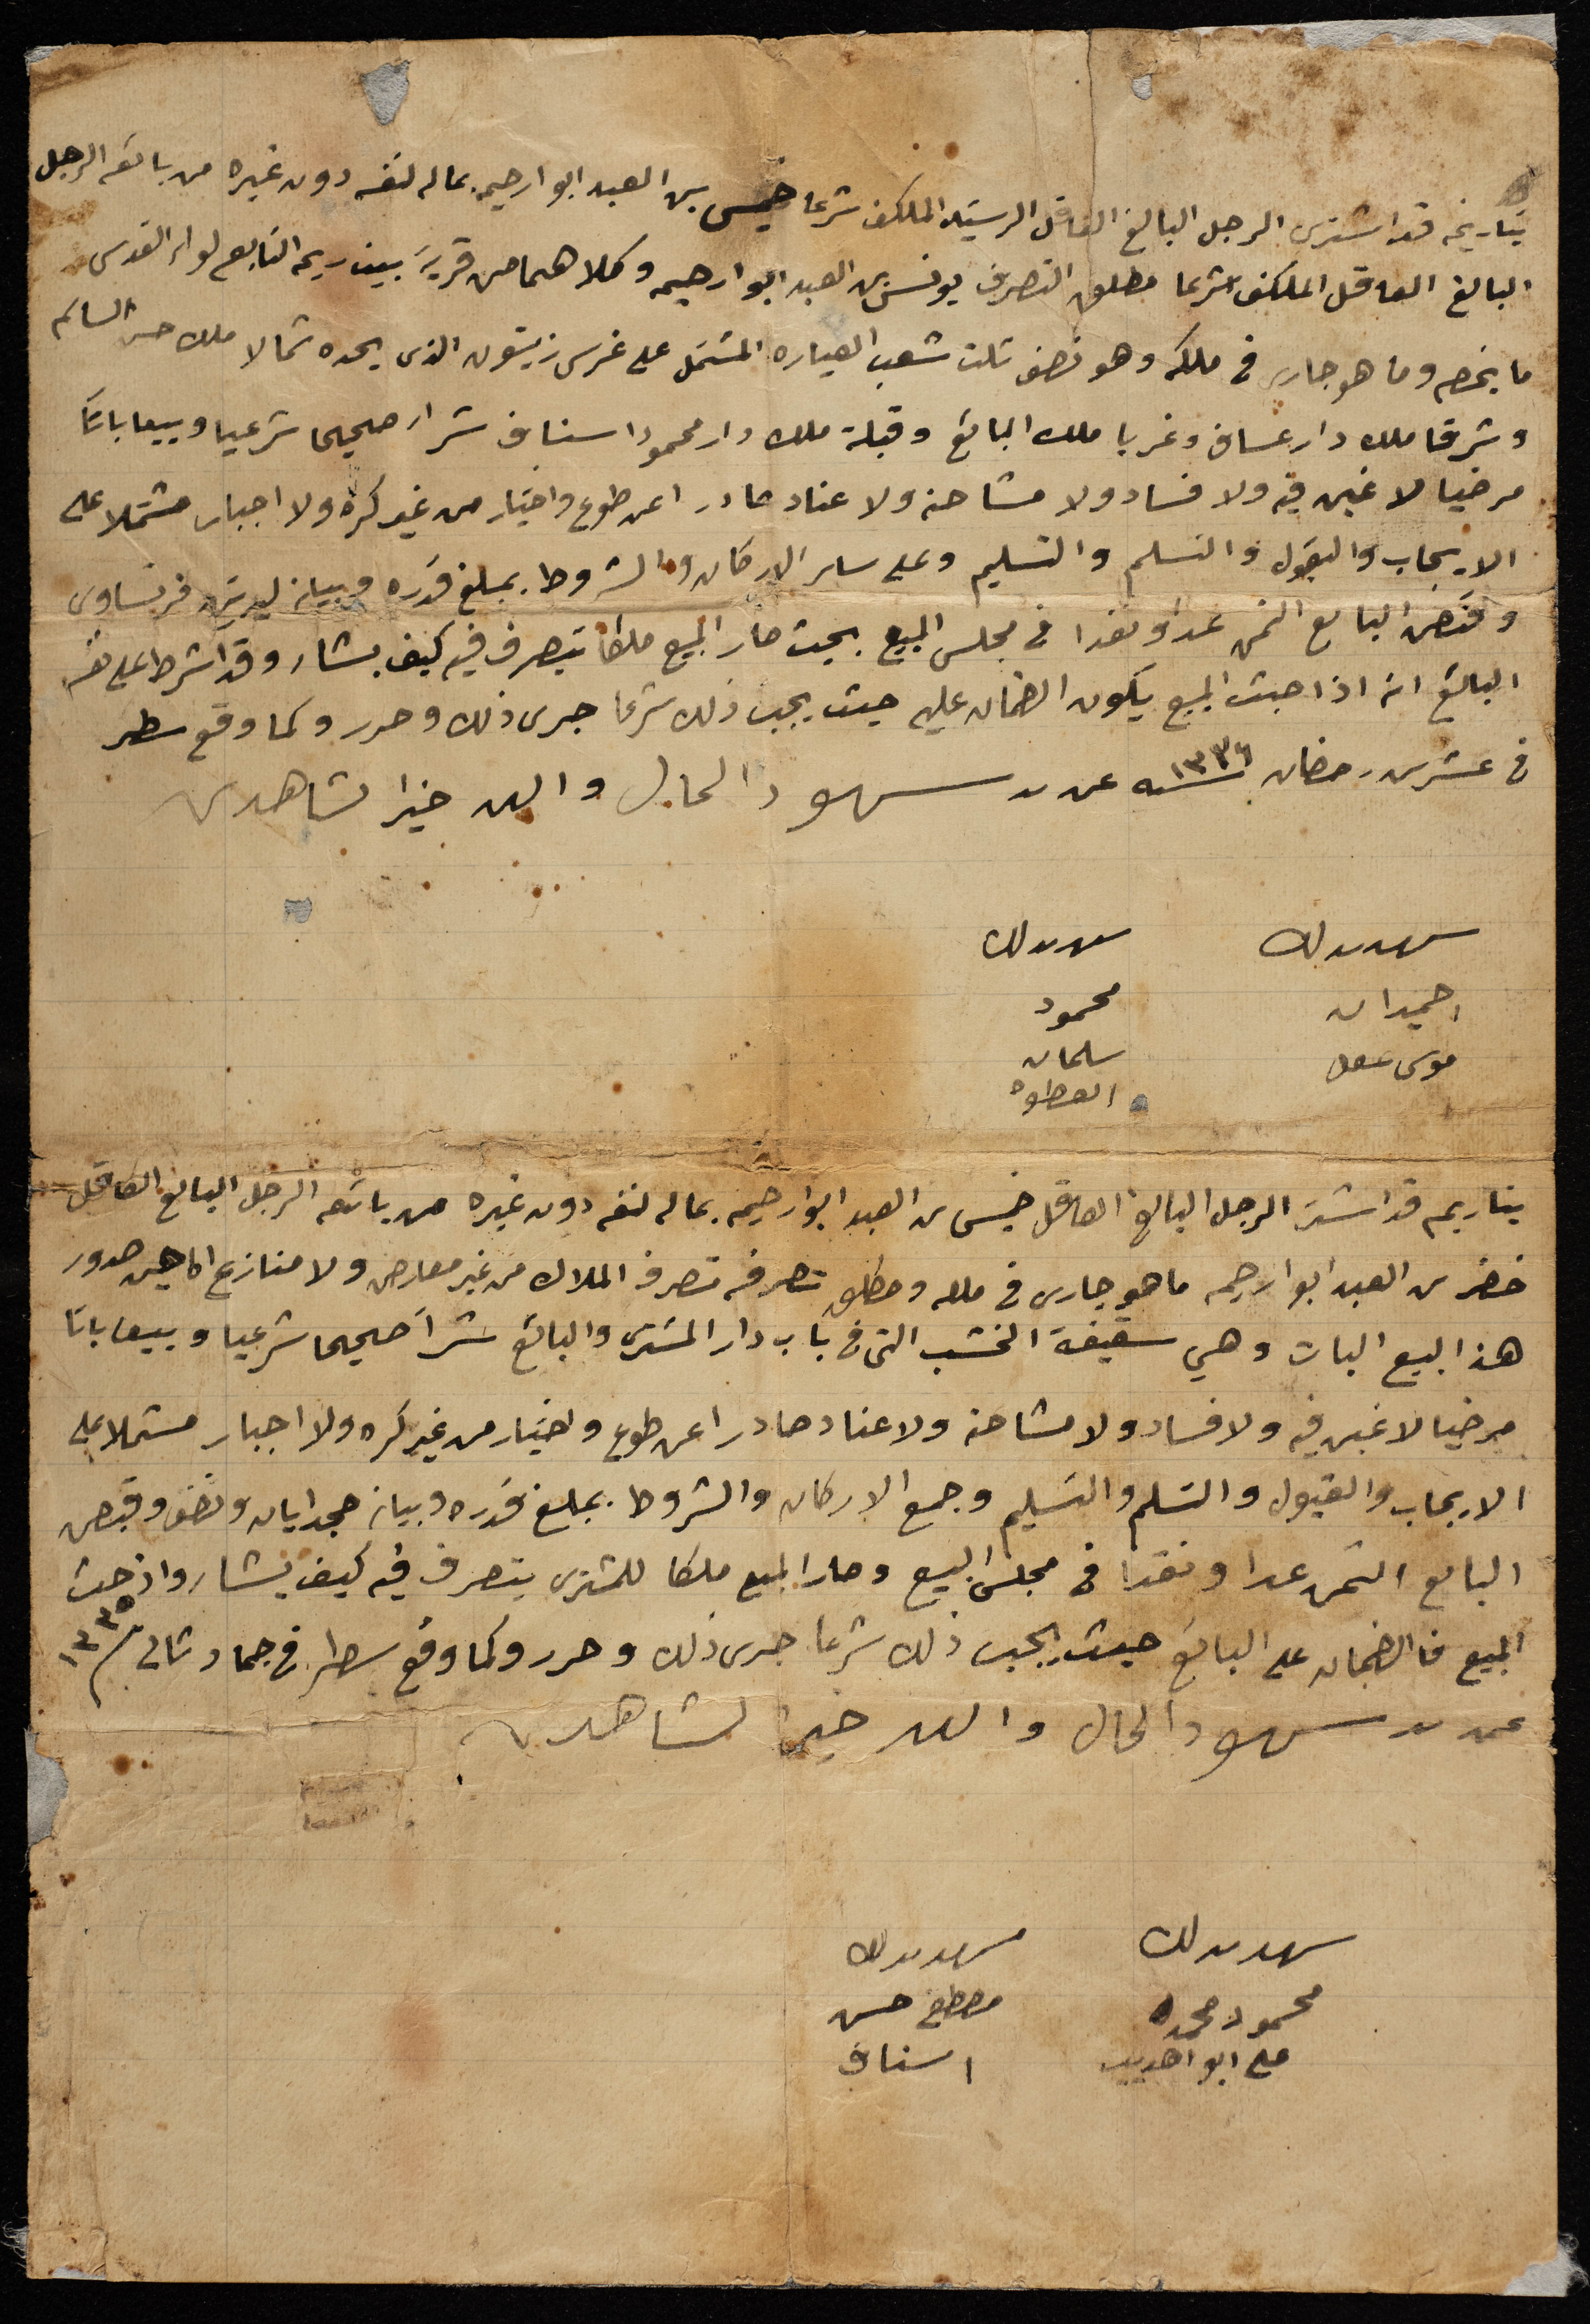 بتاريخه قد اشترى الرجل البالغ العاقل الرشيد المكلف شرعا خميس بن العبد ابو ارحيمه بماله لنفسه دون غيره من بائعه الرجل
البالغ العاقل المكلف شرعا مطلق التصرف يونس بن العبد ابو ارحيمه وكلاهما من قرية بيت ريما التابع لواء القدس
ما يخصه وما هو جاري في ملكه وهو نصف ثلث شعب العياره المشتمل على غرس زيتون الذي يحده شمالا ملك حسن السالم
وشرقا ملك دار عساف وغربا ملك البائع وقبلة ملك دار محمود اسناف شراء صحيحا شرعيا وبيعا باتا
مرضيا لا غبن فيه ولا فساد ولا مشاحنه ولا عناد صادرا عن طوع واختيار من غير كره ولا اجبار مشتملا على
الايجاب والقبول والتسلم والتسليم وعلى ساير الاركان والشروط بمبلغ قدره وبيانه ليرتين فرنساوي
وقبض البايع الثمن عدا ونقدا في مجلس البيع بحيث صار المبيع ملكا يتصرف فيه كيف يشاء وقد اشرط على نفسه
البائع انه اذا حيث المبيع يكون الضمان عليه حيث يجب ذلك شرعا جرى ذلك وحرر وكما وقع سطر
في عشرين رمضان سنه ١٣٣٦ عن يد شهود الحال والله خير الشاهدين
شهد بذلك شهد بذلك
احميدان محمود
موسى عقل سلمان
العطوه
بتاريخه قد اشترى الرجل البالغ العاقل خميس بن العبد ابو ارحيمه بماله لنفسه دون غيره من بائعه الرجل البالغ العاقل
خضر بن العبد ابو ارحيمه ما هو جاري في ملكه ومطلق تصرفه تصرف الملاك من غير معارض ولا منازع الى حين صدور
هذا البيع البات وهي سقيفة الخشب التي في باب دار المشتري والبائع شراء صحيحا شرعيا وبيعا باتا
مرضيا لا غبن فيه ولا فساد ولا مشاحنه ولا عناد صادرا عن طوع واختيار من غير كره ولا اجبار مشتملا على
الايجاب والقبول والتسلم والتسليم وجمع الاركان والشروط بمبلغ قدره وبيانه مجدايان ونصف وقبض
البايع الثمن عدا ونقدا في مجلس البيع وصار المبيع ملكا للمشتري يتصرف فيه كيف يشاء واذ حيث
المبيع فالضمان على البائع حيث يجب ذلك شرعا جرى ذلك وحرر وكما وقع سطر في جماد ثاني سنة ١٣٣٥
عن يد شهود الحال والله خير الشاهدين
شهد بذلك شهد بذلك
محمود محمد مصطفى حسن
علي ابو اهديب اسناف